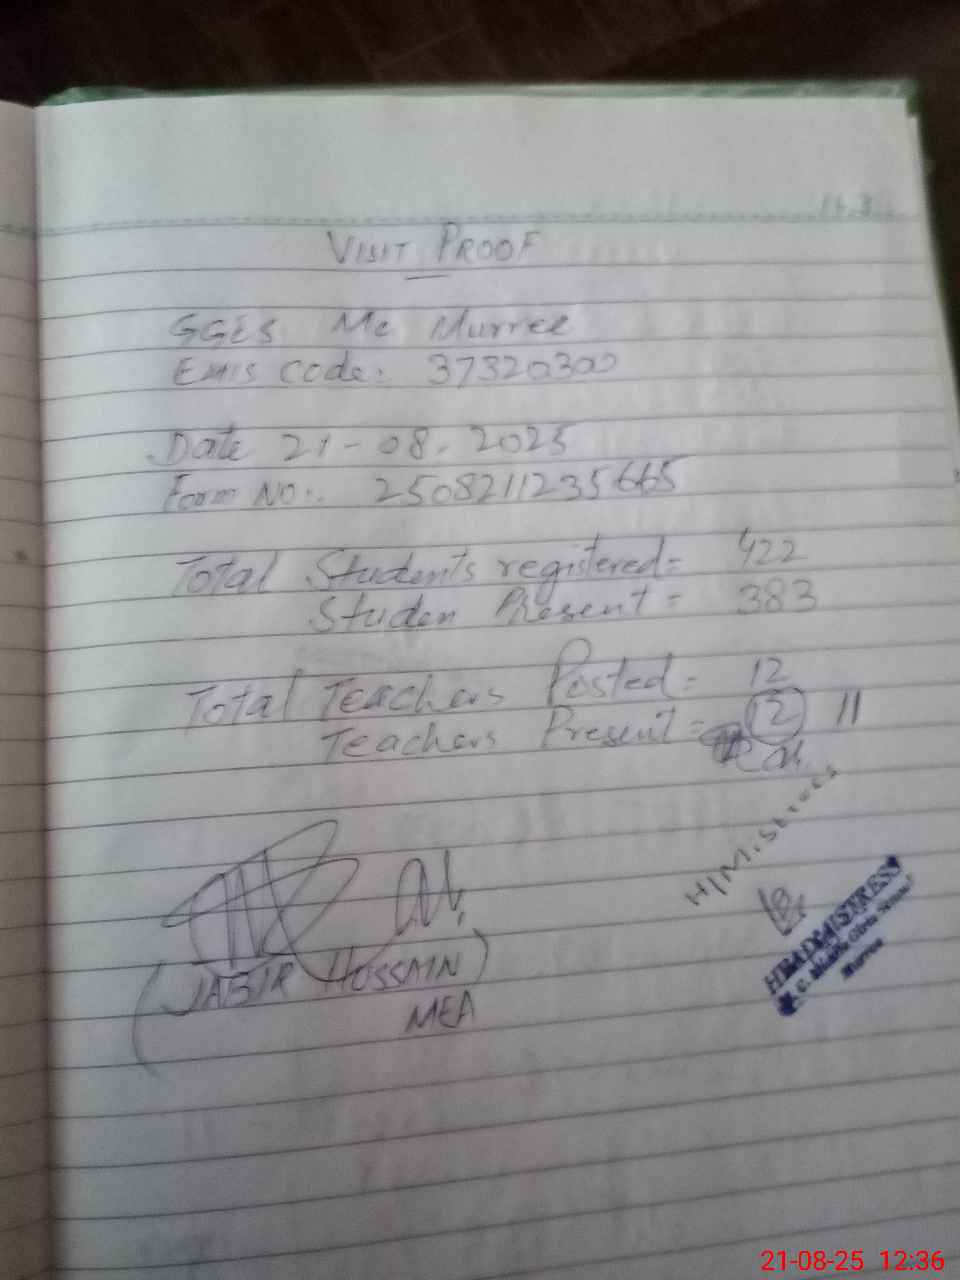 VISIT PROOF
GGES Mc Murree
Emis code: 37320300
Date 21-08-2025
Form No:. 2508211235665
Total Students registered = 422
Studen Present = 383
Total Teachers Posted = 12
Teachers Present = 12 11
H/M. Stress
(JABIR HOSSAIN)
MEA
HEADMISTRESS
M.C. Middle Girls School
Murree
21-08-25 12:36